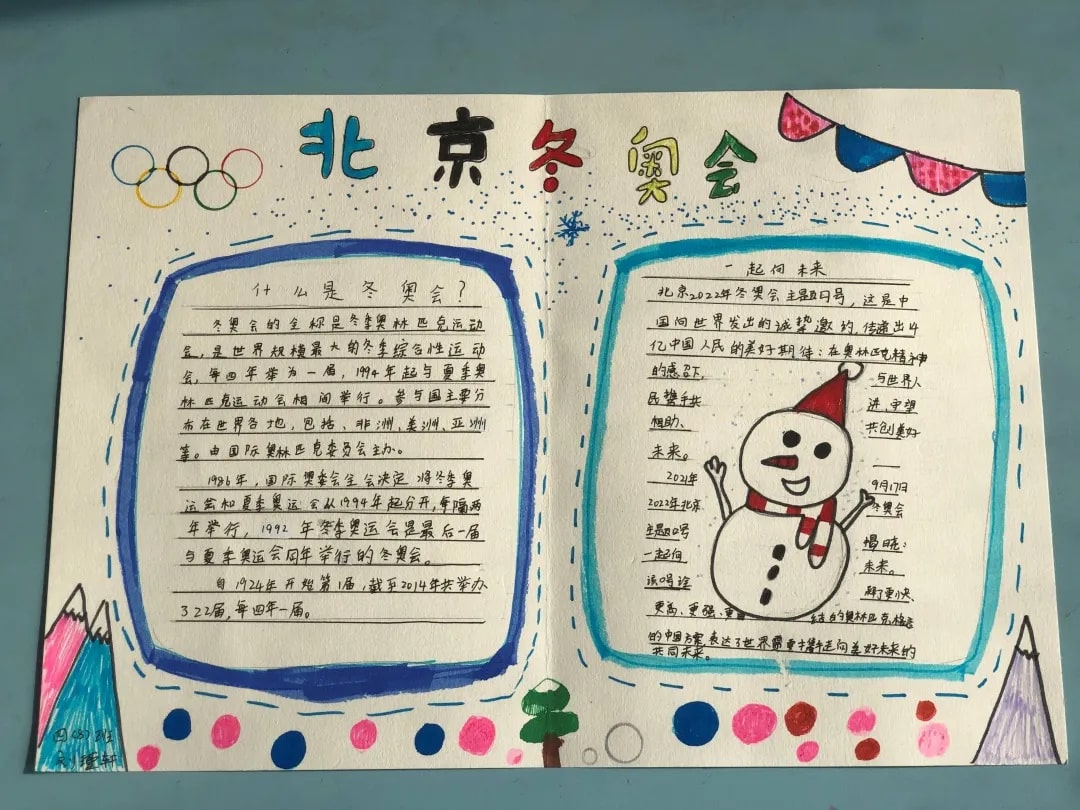 北京冬奥会
什么是冬奥会?
冬奥会的全称是冬季奥林匹克运动
会,是世界规模最大的冬季综合性运动
会,每四年举为一届,1994年起与夏季奥
林匹克运动会相间举行。参与国主要分
布在世界各地,包括、非洲、美洲、亚洲
等。由国际奥林匹克委员会主办。
1986年,国际奥委会全会决定将冬季奥
运会和夏季奥运会从1994年起分开,每隔两
年举行,1992年冬季奥运会是最后一届
与夏季奥运会同年举行的冬奥会。
自1924年开始第1届,截至2014年共举办
322届,每四年一届。
一起向未来
北京2022年冬奥会主题口号,这是中
国向世界发出的诚挚邀约,传递出14
亿中国人民的美好期待:在奥林匹克精神
的感召下, 与世界人
民携手共 进、守望
相助、 共创美好
未来。 一
2021年 9月17日
2022年北京 冬奥会
主题口号 揭晓:
一起向 未来。
该口号诠 释了更快、
更高、更强、更 结的奥林匹克格言
的中国方案,表达了世界需要携手走向美好未来的
共同未来。
四(8)班